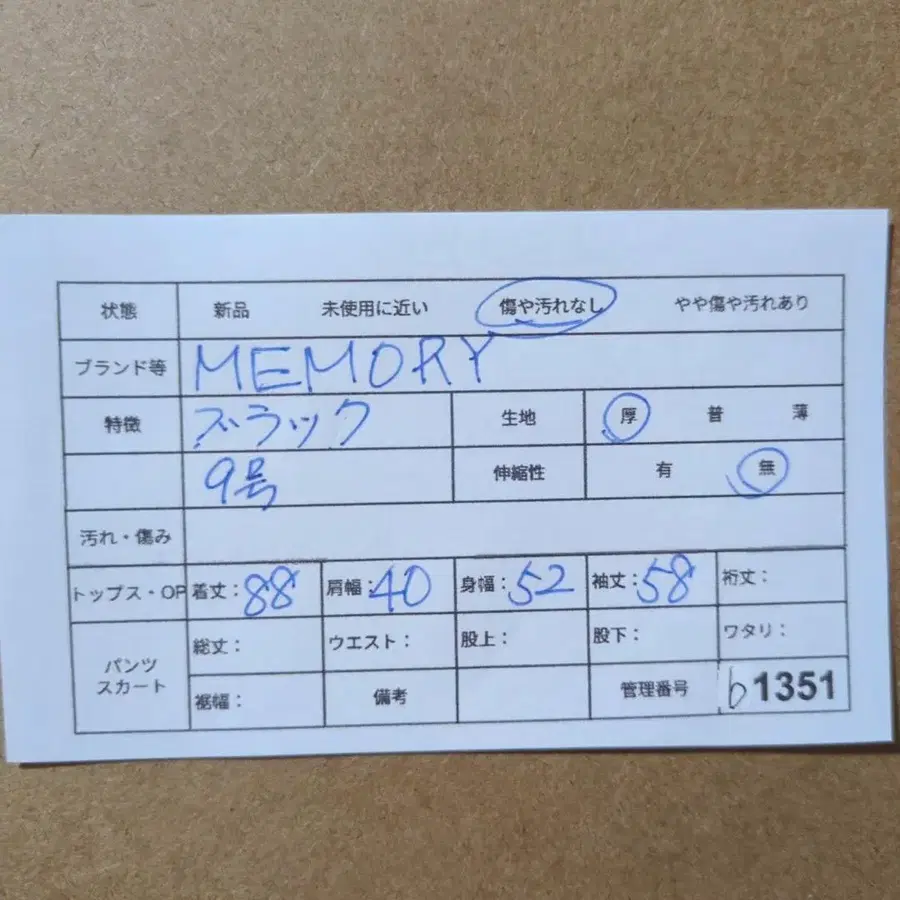 状態 新品 未使用に近い 傷や汚れなし やや傷や汚れあり
ブランド等 MEMORY
特徴 ブラック 生地 厚 普 薄
9号 伸縮性 有 無
汚れ・傷み
トップス・OP 着丈:88 肩幅:40 身幅:52 袖丈:58 裄丈:
パンツ
スカート
総丈: ウエスト: 股上: 股下: ワタリ:
裾幅: 備考 管理番号 b1351